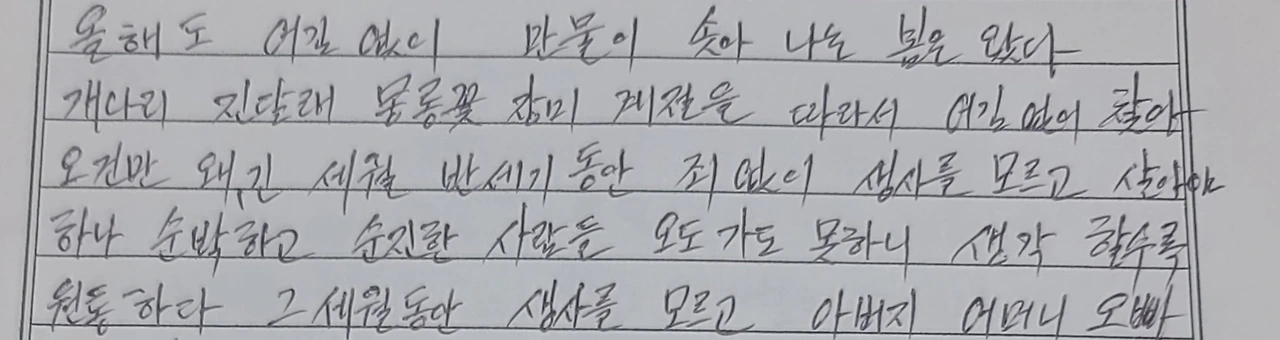 올해도 어김없이 만물이 솟아 나는 봄은 왔다
개나리 진달래 몽롱꽃 장미 계절을 따라서 어김없이 찾아
오건만 왜, 긴 세월 반세기 동안 죄 없이 생사를 모르고 살아야
하나 순박하고 순진한 사람들 오도 가도 못하니 생각 할수록
원통하다 그 세월동안 생사를 모르고 아버지 어머니 오빠